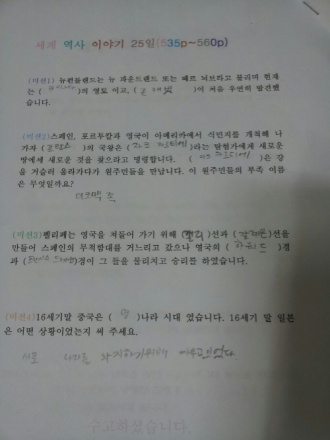 세계 역사 이야기 25일(535p~560p)
(미션1) 뉴펀들랜드는 뉴 파운드랜드 또는 떼르 뇌브라고 불리며 현재
는 ( )의 영토 이고, ( )이 처음 우연히 발견했
습니다.
(미션2)스페인, 포르투칼과 영국이 아메리카에서 식민지를 개척해 나
가자 (프랑스)의 국왕은 (자크 까르띠에)라는 탐험가에게 새로운
땅에세 새로운 것을 찾으라고 명령합니다. ( )은 강
을 거슬러 올라가다가 원주민들을 만납니다. 이 원주민들의 부족 이름
은 무엇일까요?
(미션3)펠리페는 영국을 쳐들어 가기 위해 ( )선과 ( )선을
만들어 스페인의 무적함대를 거느리고 갔으나 영국의 ( )경
과 ( )경이 그 들을 물리치고 승리를 하였습니다.
(미션4)16세기말 중국은 (명)나라 시대 였습니다. 16세기 말 일본
은 어떤 상황이었는지 써 주세요.
서로 차지하기위해
수고하셨습니다.